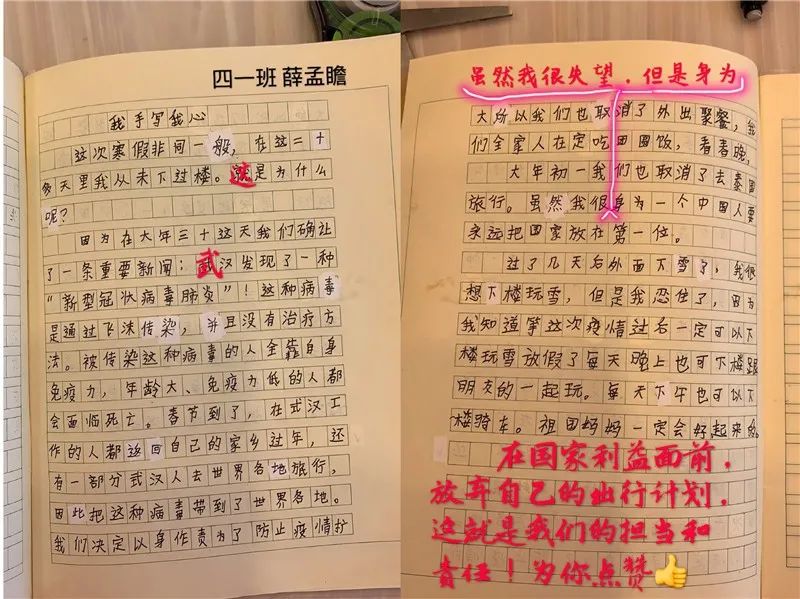 四一班 薛孟瞻
我手写我心
这次寒假非间一般，在这二十
多天里我从未下过楼。这是为什么
呢？
因为在大年三十这天我们确让
了一条重要新闻：武汉发现了一种
“新型冠状病毒肺炎”！这种病毒
是通过飞沫传染，并且没有治疗方
法。被传染这种病毒的人全靠自身
免疫力，年龄大、免疫力低的人都
会面临死亡。春节到了，在武汉工
作的人都返回自己的家乡过年，还
有一部分武汉人去世界各地旅行，
因此把这种病毒带到了世界各地。
我们决定以身作责为了防止疫情扩
虽然我很失望，但是身为
大所以我们也取消了外出聚餐，我
们全家人在定吃团圆饭，看春晚，
大年初一我们也取消了去泰国
旅行。虽然我很身为一个中国人要
永远把国家放在第一位。
过了几天后外面下雪了，我很
想下楼玩雪，但是我忍住了，因为
我知道等这次疫情过后一定可以下
楼玩雪放假了每天晚上也可下楼跟
朋友的一起玩。每天下午也可以下
楼骑车。祖国妈妈一定会好起来的。
在国家利益面前，
放弃自己的出行计划，
这就是我们的担当和
责任！为你点赞👍